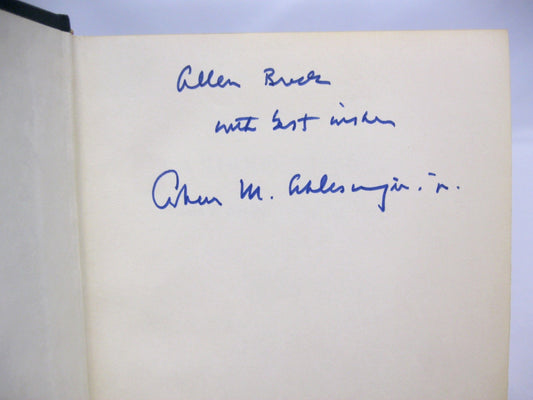 Allen Breck
with best wishes
Arthur M. Schlesinger, jr.